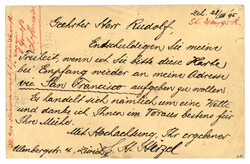 Geehrter Herr Rudolf.
Entschuldigen Sie meine
Freiheit, wenn ich Sie bitte diese Karte
bei Empfang wieder an meine Adresse
via San Francisco aufgeben zu wollen
Es handelt sich nämlich um eine Wette
und danke ich Ihnen im Voraus bestens für
Ihre Mühe.
Mit Hochachtung, Ihr ergebener
Zürich H.